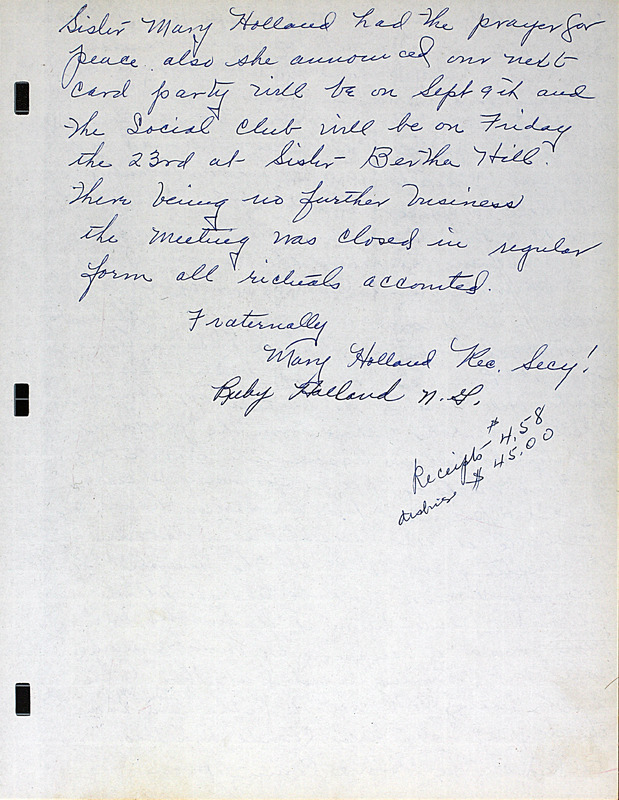 Sister Mary Holland had the prayer for
peace. also she announced our next
card party will be on Sept 9th and
the Social Club will be on Friday
the 23rd at Sister Bertha Hill.
There being no further business
the meeting was closed in regular
form all richuals accounted.
Fraternally
Mary Holland Rec. Secy!
Ruby Holland N.G.
Receipts $4.58
$45.00